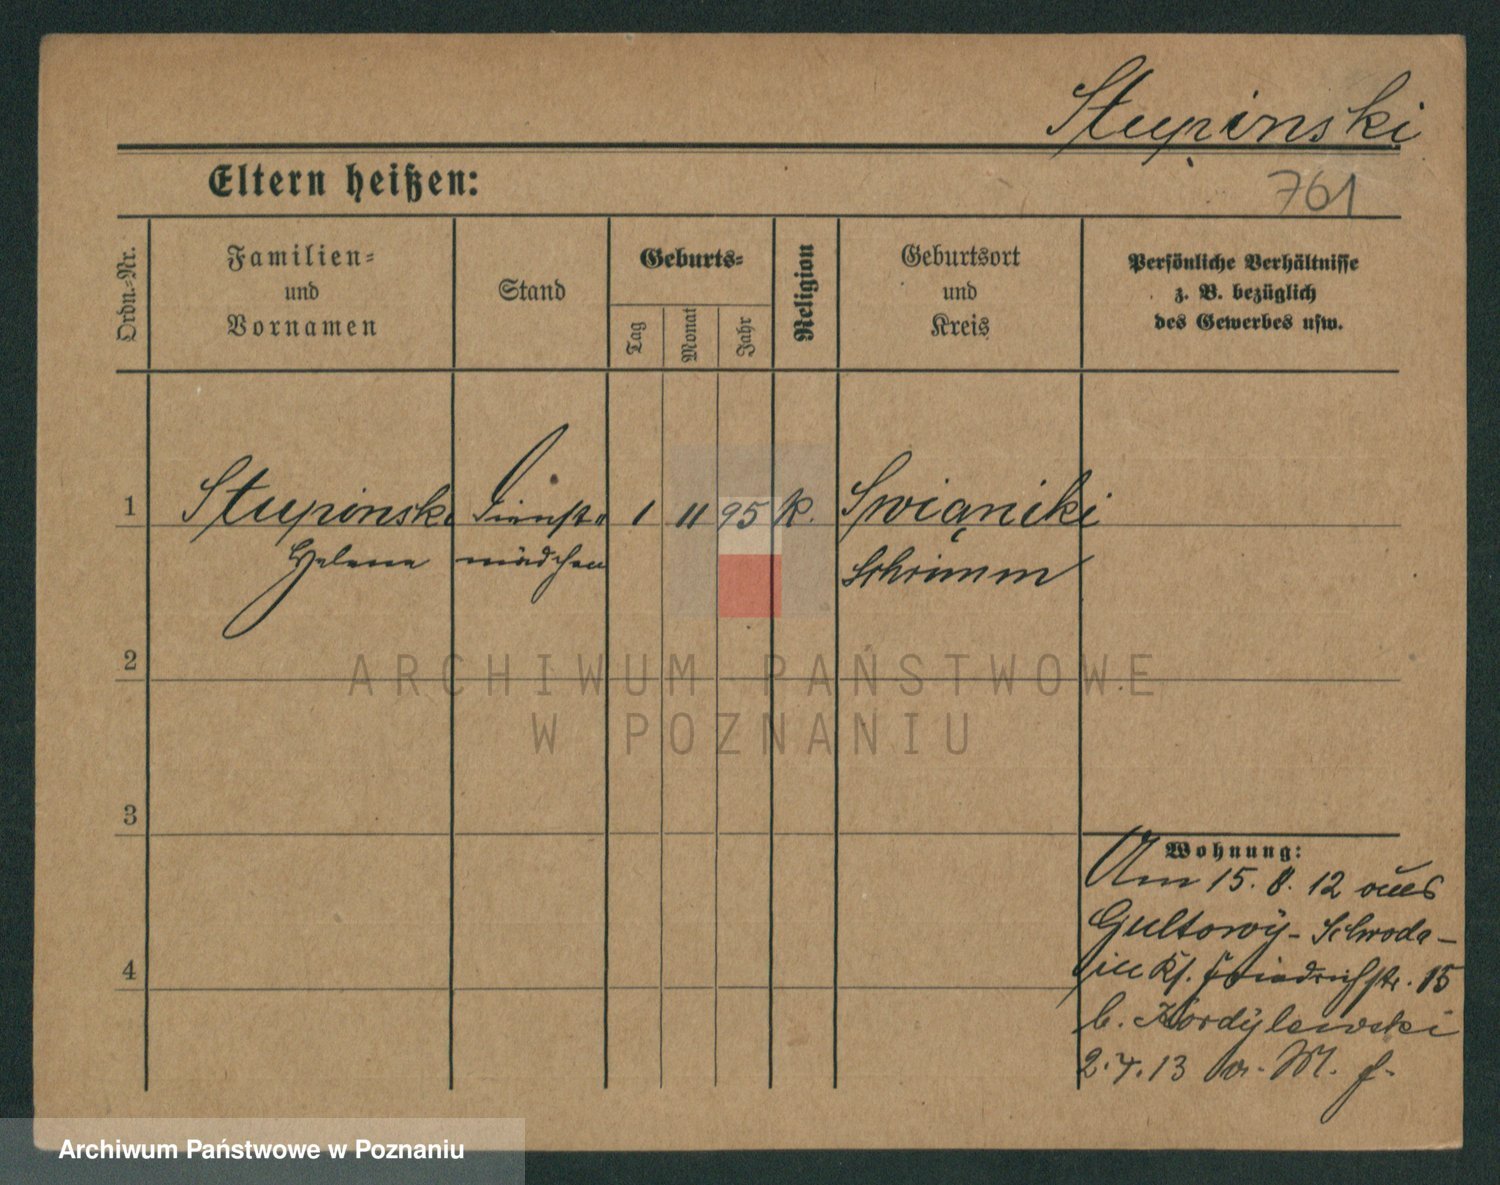 Stupinski
761
Eltern heißen:
Ordn.-Nr.
Familien-
und
Vornamen
Stand
Geburts-
Tag
Monat
Jahr
Religion
Geburtsort
und
Kreis
Persönliche Verhältnisse
z. B. bezüglich
des Gewerbes usw.
1
Stupinski
Dienst-
1
11
95
K.
Swiąniki
Helene
mädchen
Schrimm
2
ARCHIWUM PAŃSTWOWE
W POZNANIU
3
Wohnung:
Am 15. 8. 12 aus
Gultowy - Schroda -
Friedrichstr. 15
b. Kordylewski
4
2. 4. 13
Archiwum Państwowe w Poznaniu